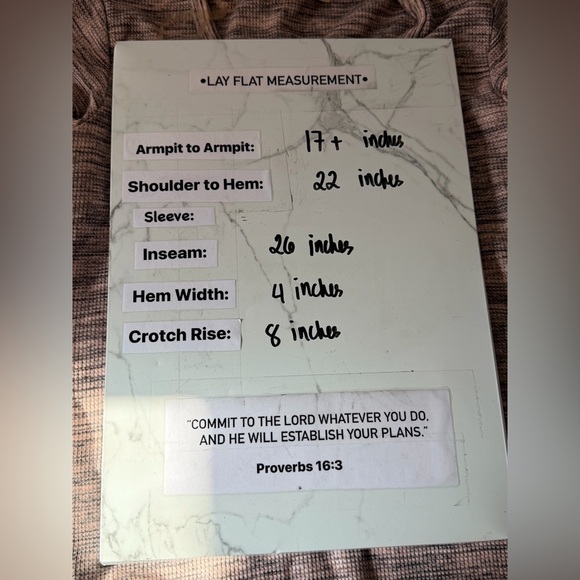 •LAY FLAT MEASUREMENT•
Armpit to Armpit: 17+ inches
Shoulder to Hem: 22 inches
Sleeve:
Inseam: 26 inches
Hem Width: 4 inches
Crotch Rise: 8 inches
"COMMIT TO THE LORD WHATEVER YOU DO,
AND HE WILL ESTABLISH YOUR PLANS."
Proverbs 16:3